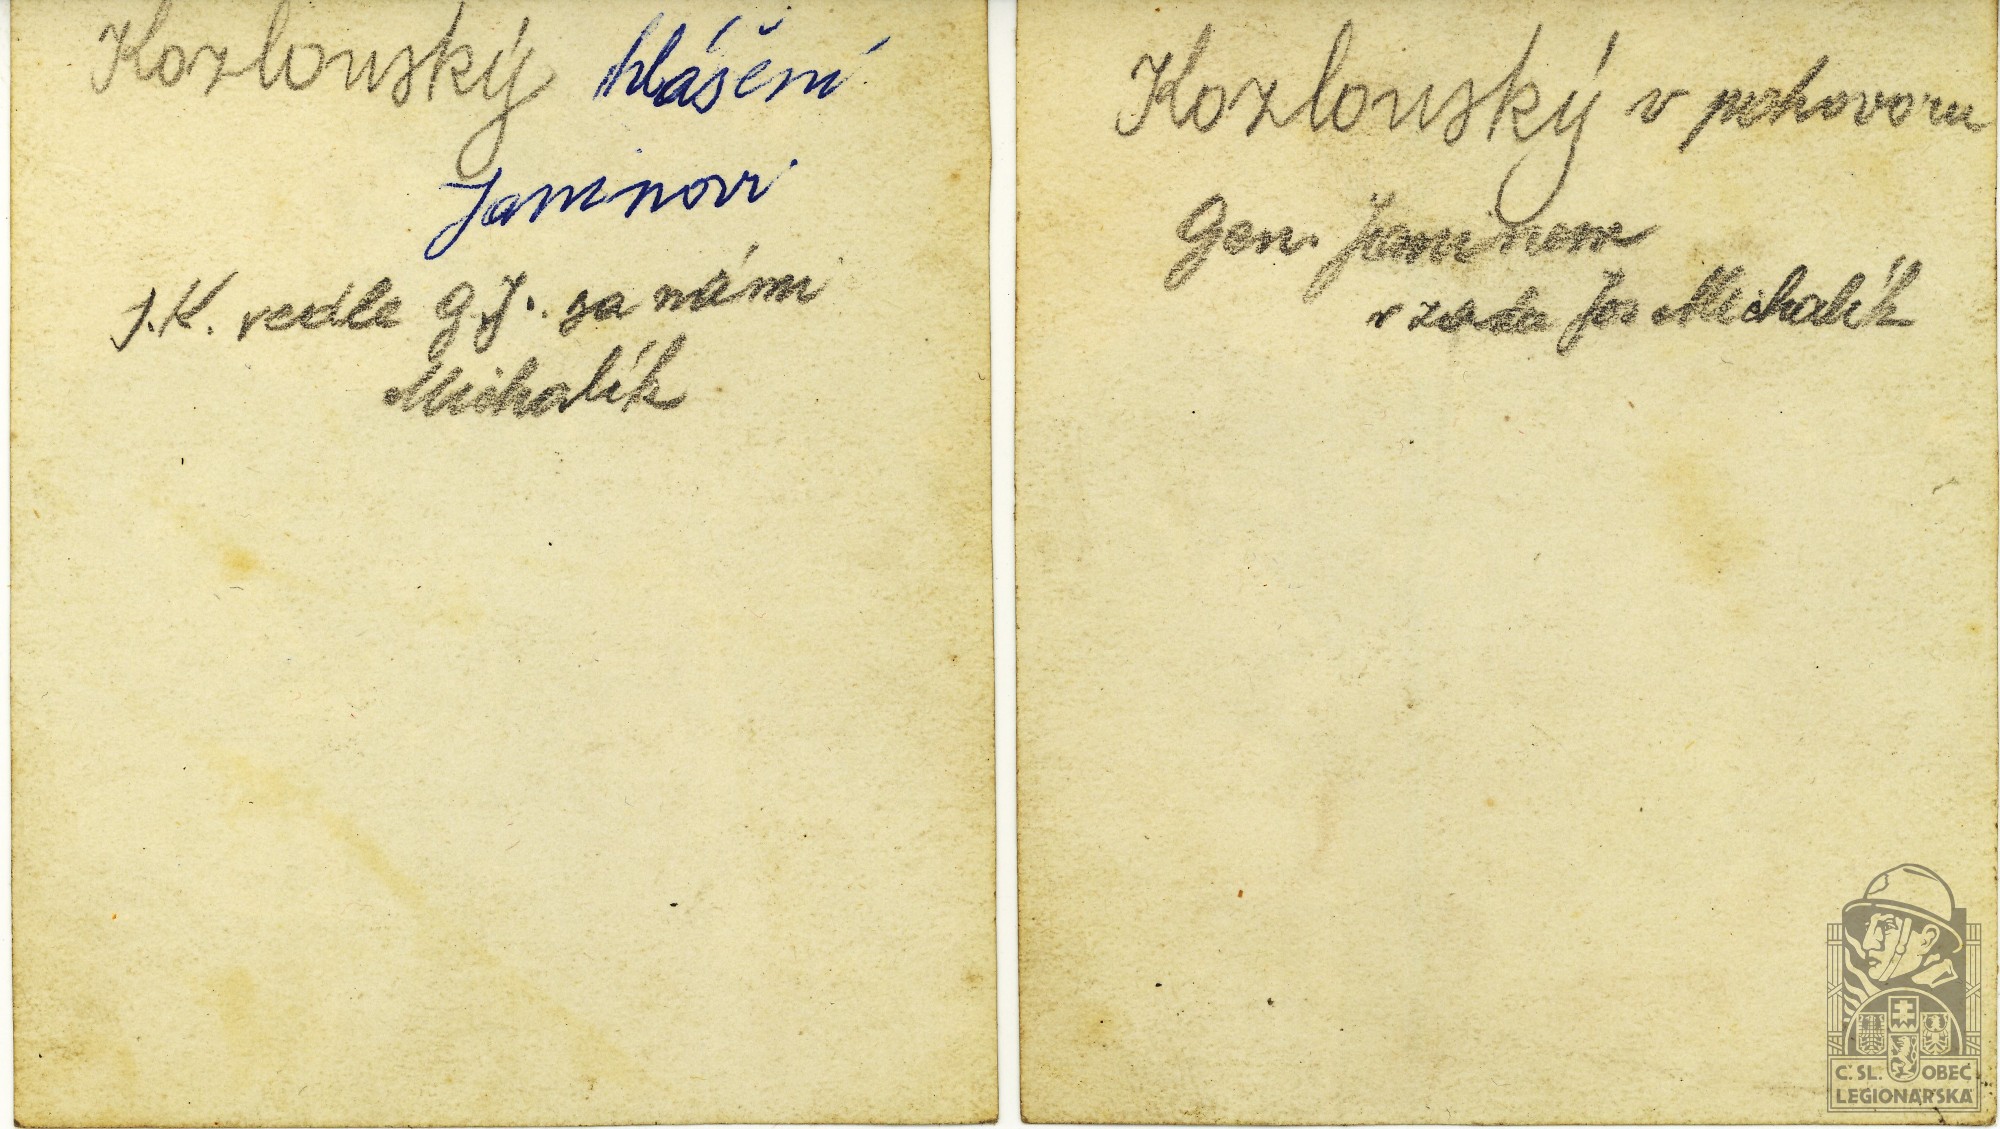 Kozlouský hlášení
Janinovi
J.K. vedle G.J. za námi
Michalík
Kozlouský v rozhovoru
Gen. Janinem
v zadu Jos Michalík
Č. SL. OBEC
LEGIONÁŘSKÁ